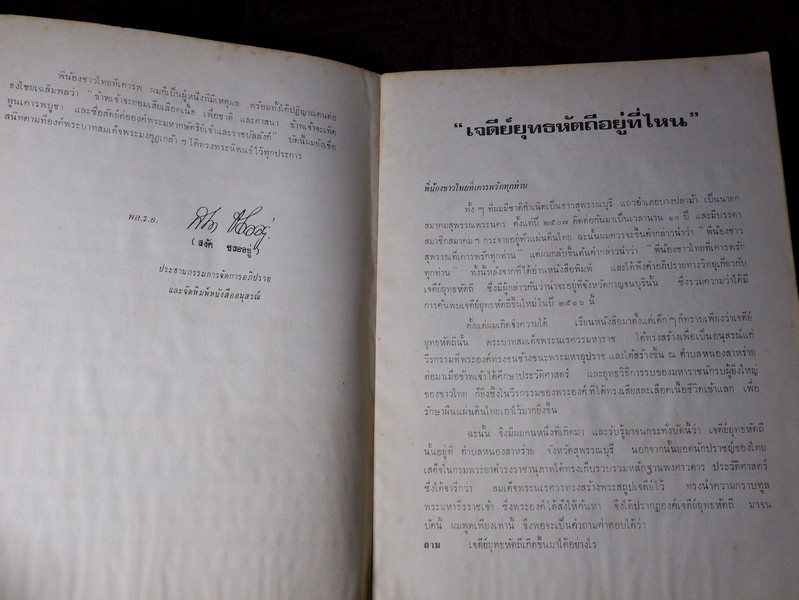 พี่น้องชาวไทยที่เคารพ ผมก็เป็นผู้หนึ่งที่มีเหตุผล พร้อมทั้งได้ปฏิญาณตนต่อ
ธงไชยเฉลิมพลว่า " ข้าพเจ้าจะยอมเสียเลือดเนื้อ เพื่อชาติ และศาสนา ข้าพเจ้าจะเทิด
พูนเคารพบูชา และซื่อสัตย์ต่อองค์พระมหากษัตริย์เจ้าและราชบัลลังค์ " บัดนี้ผมยังเชื่อ
สนิทตามที่องค์พระบาทสมเด็จพระมงกุฎเกล้า ฯ ได้ทรงพระนิพนธ์ไว้ทุกประการ
พล.ร.อ.
( สงัด ชลออยู่ )
ประธานกรรมการจัดการอภิปราย
และจัดพิมพ์หนังสืออนุสรณ์
“เจดีย์ยุทธหัตถีอยู่ที่ไหน”
พี่น้องชาวไทยที่เคารพรักทุกท่าน
ทั้ง ๆ ที่ผมมีชาติกำเนิดเป็นชาวสุพรรณบุรี แถวอำเภอบางปลาม้า เป็นนายก
สมาคมสุพรรณพระนคร ตั้งแต่ปี ๒๕๐๗ ติดต่อกันมาเป็นเวลานาน ๑๐ ปี และมีบรรดา
สมาชิกสมาคม ฯ กระจายอยู่ทั่วแผ่นดินไทย ฉะนั้นผมควรจะขึ้นคำกล่าวนำว่า " พี่น้องชาว
สุพรรณที่เคารพรักทุกท่าน " แต่ผมกลับขึ้นต้นคำกล่าวนำว่า " พี่น้องชาวไทยที่เคารพรัก
ทุกท่าน " ทั้งนี้หลังจากที่ได้อ่านหนังสือพิมพ์ และได้ฟังคำอภิปรายทางวิทยุเกี่ยวกับ
เจดีย์ยุทธหัตถี ซึ่งมีผู้กล่าวกันว่าน่าจะอยู่ที่จังหวัดกาญจนบุรีนั้น ซึ่งรวมความว่าได้มี
การค้นพบเจดีย์ยุทธหัตถีขึ้นใหม่ในปี ๒๕๑๖ นี้
ตั้งแต่ผมเกิดจำความได้ เรียนหนังสือมาตั้งแต่เด็ก ๆ ก็ทราบเพียงว่าเจดีย์
ยุทธหัตถีนั้น พระบาทสมเด็จพระนเรศวรมหาราช ได้ทรงสร้างเพื่อเป็นอนุสรณ์แก่
วีรกรรมที่พระองค์ทรงชนช้างชนะพระมหาอุปราช และได้สร้างขึ้น ณ ตำบลหนองสาหร่าย
ต่อมาเมื่อข้าพเจ้าได้ศึกษาประวัติศาสตร์ และยุทธวิธีการรบของมหาราชนักรบผู้ยิ่งใหญ่
ของชาวไทย ก็ยิ่งซึ้งในวีรกรรมของพระองค์ ที่ได้ทรงเสียสละเลือดเนื้อชีวิตเข้าแลก เพื่อ
รักษาผืนแผ่นดินไทยเอาไว้มากยิ่งขึ้น
ฉะนั้น จึงมีผมคนหนึ่งที่เกิดมา และรับรู้มาจนกระทั่งบัดนี้ว่า เจดีย์ยุทธหัตถี
นั้นอยู่ที่ ตำบลหนองสาหร่าย จังหวัดสุพรรณบุรี นอกจากนั้นยอดนักปราชญ์ของไทย
เสด็จในกรมพระยาดำรงราชานุภาพได้ทรงเก็บรวบรวมหลักฐานพงศาวดาร ประวัติศาสตร์
ซึ่งได้จารึกว่า สมเด็จพระนเรศวรทรงสร้างพระสถูปเจดีย์ไว้ ทรงนำความกราบทูล
พระมหาธีรราชเจ้า ซึ่งพระองค์ได้สั่งให้ค้นหา จึงได้ปรากฏองค์เจดีย์ยุทธหัตถี มาจน
บัดนี้ ผมพูดเพียงเท่านี้ จึงพอจะเป็นคำถามคำตอบได้ว่า
ถาม เจดีย์ยุทธหัตถีเกิดขึ้นมาได้อย่างไร